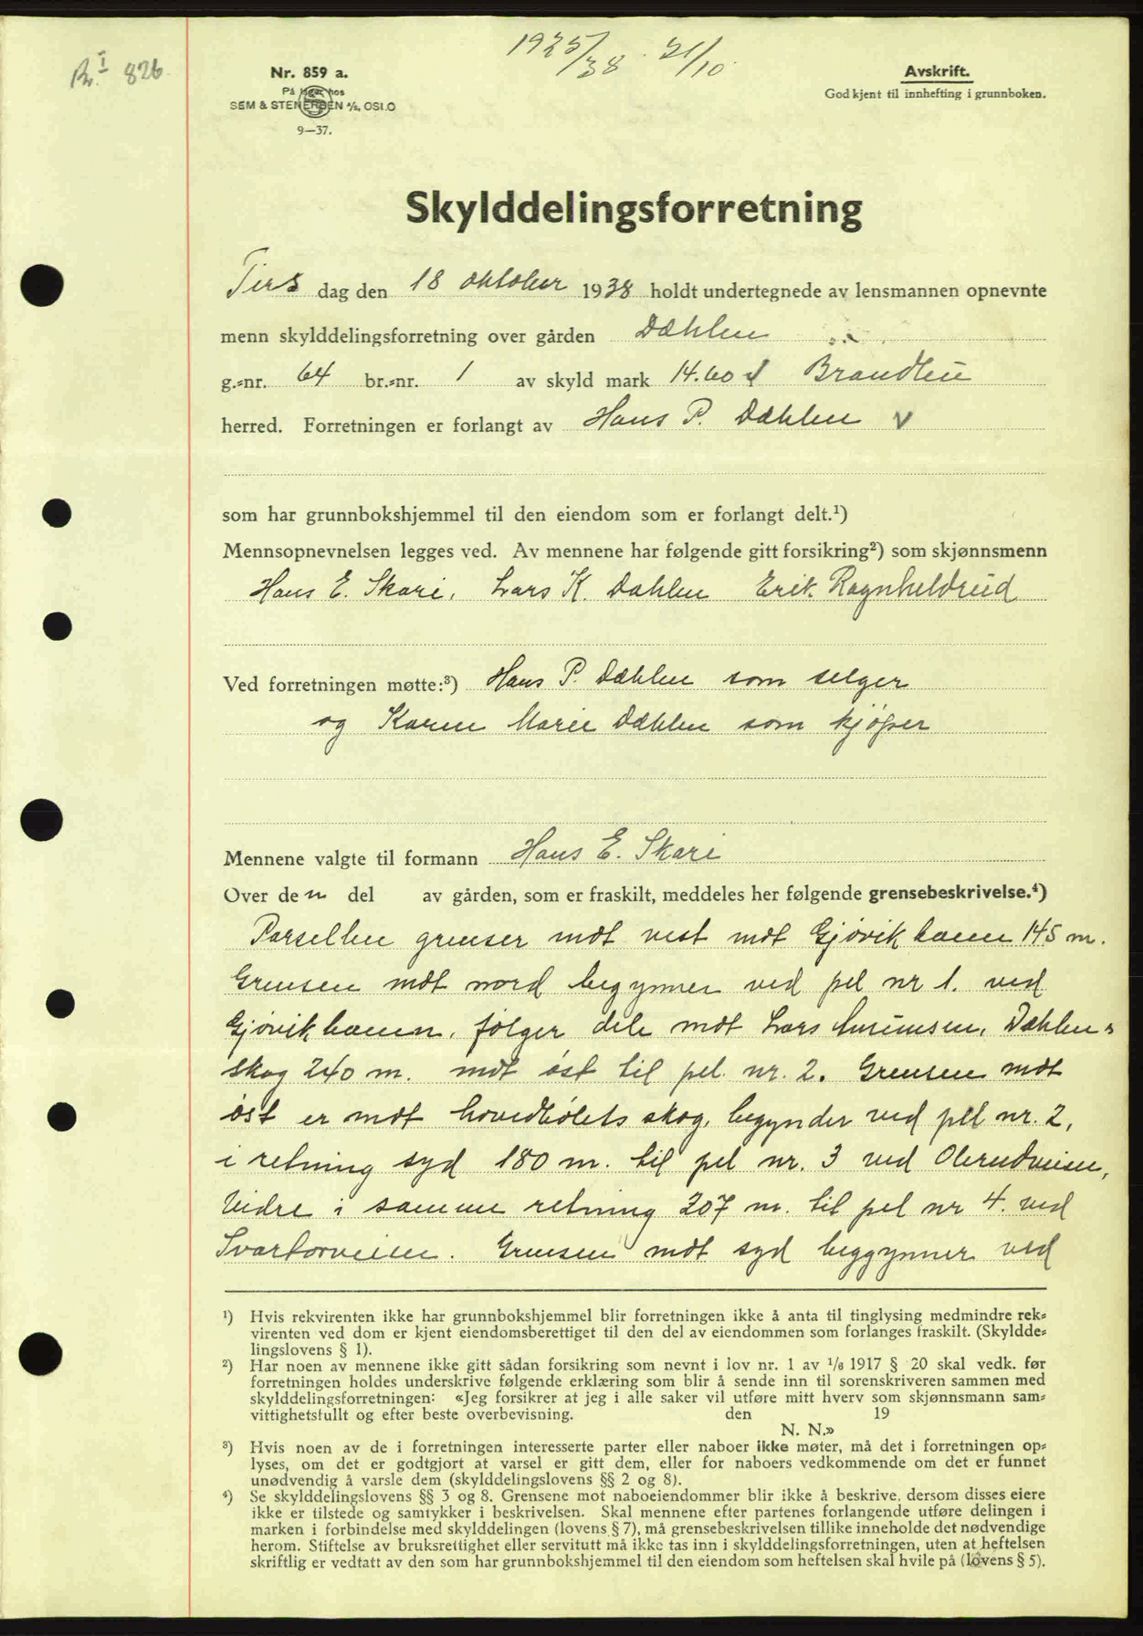 1925/38 21/10
826
Nr. 859 a.
På lager hos
SEM & STENERSEN A/S, OSLO
9—37.
Avskrift.
Godkjent til innhefting i grunnboken.
Skylddelingsforretning
Tirsdag den 18 oktober 1938 holdt undertegnede av lensmannen opnevnte
menn skylddelingsforretning over gården Dæhlen
g.-nr. 64 br.-nr. 1 av skyld mark 14.60 i Brandbu
herred. Forretningen er forlangt av Hans P. Dæhlen
som har grunnbokshjemmel til den eiendom som er forlangt delt.¹)
Mennsopnevnelsen legges ved. Av mennene har følgende gitt forsikring²) som skjønnsmenn
Hans E. Skari, Lars K. Dæhlen Erik Ragnhildrud
Ved forretningen møtte:³) Hans P. Dæhlen som selger
og Karen Marie Dæhlen som kjøper
Mennene valgte til formann Hans E. Skari
Over den del av gården, som er fraskilt, meddeles her følgende grensebeskrivelse.⁴)
Parsellen grenser mot vest mot Gjøvikbanen 145 m.
Grensen mot nord begynner ved pel nr 1. ved
Gjøvikbanen, følger dele mot Lars Dæhlen
skog 240 m. mot øst til pel nr. 2. Grensen mot
øst er mot hovedbølets skog, begynder ved pel nr. 2,
i retning syd 180 m. til pel nr. 3 ved
Vidre i samme retning 207 m. til pel nr 4. ved
Svartorveien. Grensen mot syd beggynner ved
¹) Hvis rekvirenten ikke har grunnbokshjemmel blir forretningen ikke å anta til tinglysing medmindre rek-
virenten ved dom er kjent eiendomsberettiget til den del av eiendommen som forlanges fraskilt. (Skyldde-
lingslovens § 1).
²) Har noen av mennene ikke gitt sådan forsikring som nevnt i lov nr. 1 av 1/6 1917 § 20 skal vedk. før
forretningen holdes underskrive følgende erklæring som blir å sende inn til sorenskriveren sammen med
skylddelingsforretningen: «Jeg forsikrer at jeg i alle saker vil utføre mitt hverv som skjønnsmann sam-
vittighetsfullt og efter beste overbevisning. den 19
N. N.»
³) Hvis noen av de i forretningen interesserte parter eller naboer ikke møter, må det i forretningen op-
lyses, om det er godtgjort at varsel er gitt dem, eller for naboers vedkommende om det er funnet
unødvendig å varsle dem (skylddelingslovens §§ 2 og 8).
⁴) Se skylddelingslovens §§ 3 og 8. Grensene mot naboeiendommer blir ikke å beskrive, dersom disses eiere
ikke er tilstede og samtykker i beskrivelsen. Skal mennene efter partenes forlangende utføre delingen i
marken i forbindelse med skylddelingen (lovens § 7), må grensebeskrivelsen tillike inneholde det nødvendige
herom. Stiftelse av bruksrettighet eller servitutt må ikke tas inn i skylddelingsforretningen, uten at heftelsen
skriftlig er vedtatt av den som har grunnbokshjemmel til den eiendom som heftelsen skal hvile på (lovens § 5).